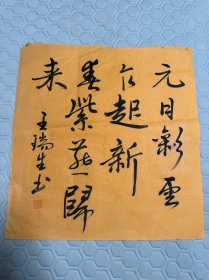 元日彩雲
起新
春紫燕歸
来
王瑞生书